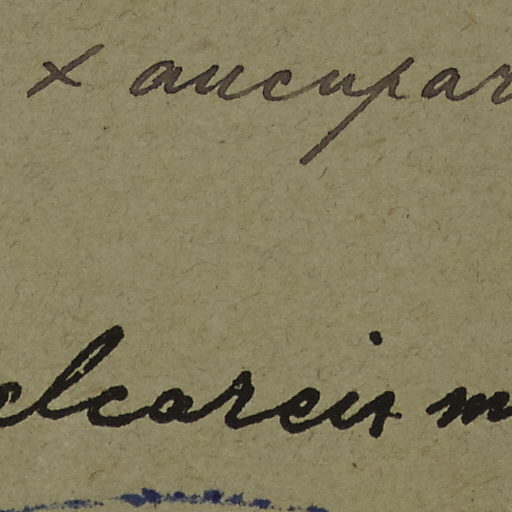 × aucupar
clcareis m